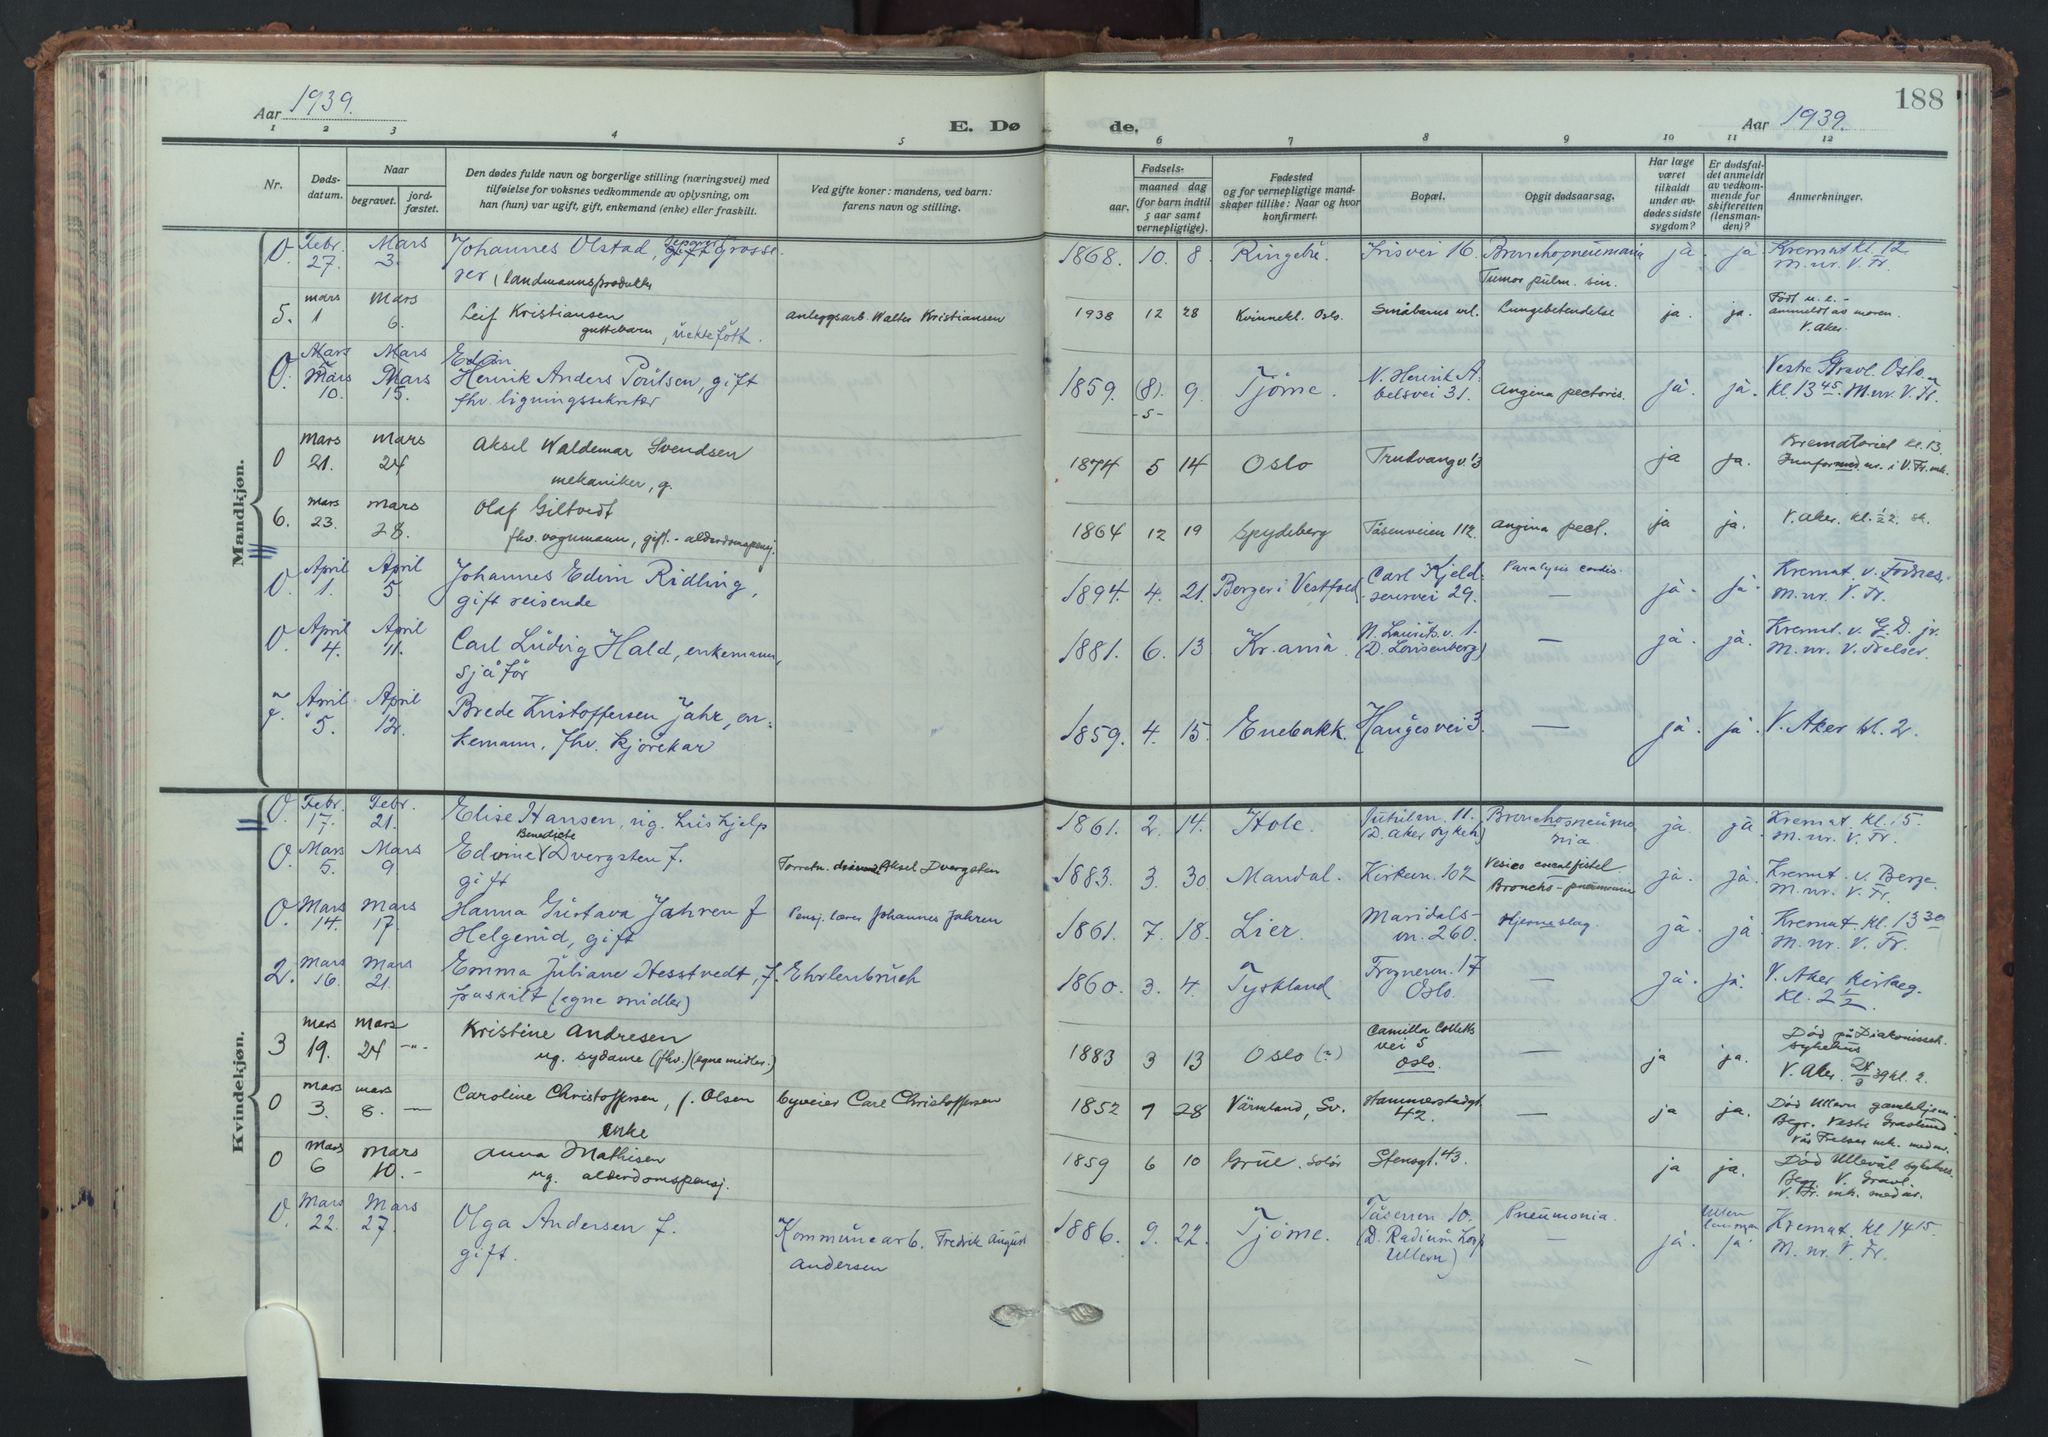 Aar 1939.
E. Døde.
Aar 1939.
188
1 2 3 4 5 6 7 8 9 10 11 12
Nr.
Døds-datum.
Naar
begravet.
jord-fæstet.
Den dødes fulde navn og borgerlige stilling (næringsvei) med
tilføielse for voksnes vedkommende av oplysning, om
han (hun) var ugift, gift, enkemand (enke) eller fraskilt.
Ved gifte koner: mandens, ved barn:
farens navn og stilling.
Fødsels-
aar.
maaned dag
(for barn indtil
5 aar samt
vernepligtige).
Fødested
og for vernepligtige mand-
skaper tillike: Naar og hvor
konfirmert.
Bopæl.
Opgit dødsaarsag.
Har læge
været
tilkaldt
under av-
dødes sidste
sygdom?
Er dødsfal-
det anmeldt
av vedkom-
mende for
skifteretten
(lensman-
den)?
Anmerkninger.
Mandkjøn.
0. Febr. 27. Mars 3. Johannes Olstad, separert gift Grosse
rer (landmannsprodukter 1868. 10. 8. Ringebu. Irisvei 16. Bronchopneumonia
Tumor pulm. sin. ja. ja Kremat. kl. 12
M. nr. V. Fr.
5. mars 1 mars 6. Leif Kristiansen
guttebarn, uekte født. anleggsarb. Walter Kristiansen 1938 12 28 Kvinnekl. Oslo. Småbarns Lungebetendelse ja. ja. Født u. e. -
anmeldt av moren.
V. Aker.
0. Mars Mars 10. Mars Mars 15. Edvin
Henrik Anders Poulsen, gift
fhv. ligningssekretær 1859. (8). -5- 9. Tjøme. N. Henrik A-
belsvei 31. Angina pectoris. ja. ja. Vestre Gravl. Oslo.
kl. 13 45. M. nr. V. Fr.
0 Mars 21. mars 24 Aksel Waldemar Svendsen
mekaniker, g. 1874 5 14 Oslo Trudvangv. 13 ja ja. Krematoriet kl. 13.
V. Fr. mk.
6. mars 23. mars 28. Olaf Giltvedt
fhv. vognmann, gift. - alderdomspensj. 1864 12 19 Spydeberg Tåsenveien 112. angina pect. ja ja. V. Aker. kl. 1/2 2.
0. April 1. April 5. Johannes Edvin Ridling,
gift reisende 1894. 4. 21. Berger i Vestfold Carl Kjeld-
sensvei 29. Paralysis cordis.
— ja. ja. Kremat. v. Fosnes.
M. nr. V. Fr.
0. April 4. April 11. Carl Ludvig Hald, enkemann,
sjåfør 1881. 6. 13. Kr.ania. N. Lauritsv. 1.
(D. Lovisenberg) — ja. ja. Kremat. v. G. D. jr.
M. nr. V. Frelser.
7. April 5. April 12. Brede Kristoffersen Jahr, en-
kemann, fhv. kjørekar 1859. 4. 15. Enebakk. Haugesvei 3. — ja. ja. V. Aker kl. 2.
Kvindekjøn.
0. Febr. 17. Febr. 21. Elise Hansen, ug. hushjelp 1861. 2. 14. Hole Jutulvn. 11.
(D. Aker sykeh) Bronchopneumo
nia ja. ja. Kremat. kl. 15.
M. nr. V. Fr.
0. Mars 5. Mars 9. Benedicte
Edvine Dvergsten f.
gift Aksel Dvergsten 1883. 3. 30. Mandal. Kirkevn. 102 Broncho-pneumonia ja. ja. Kremat. v. Berge.
M. nr. V. Fr.
0. Mars 14. Mars 17. Hanna Gustava Jahren f
Helgerud, gift Pensj. lærer Johannes Jahren 1861. 7. 18. Lier. Maridals-
vn. 260. Hjerneslag ja. ja. Kremat. kl. 13 30
M. nr. V. Fr.
2. Mars 16. Mars 21. Emma Juliane Hesstvedt, f.
fraskilt (egne midler) Ehrlenbruch 1860. 3. 4. Tyskland Frognervn. 17
Oslo. — ja. ja. V. Aker kirkeg.
kl. 2 1/2
3 mars 19. Mars 24 -"- Kristine Andresen
ug. sydame (fhv.) (egne midler.) 1883 3 13 Oslo (?) Camilla Colletts
vei 5
Oslo. — ja ja. Død på Diakonisseh.
sykehus
V. Aker. 24/3 39 kl. 2.
0 mars 3. mars 8. — Caroline Christoffersen, f. Olsen
enke byveier Carl Christoffersen 1852 7 28 Värmland, Sv. Hammerstadgt.
42. ja ja. Død Ullern gamlehjem.
Begr. Vestre Gravlund.
Vår Frelser mk. mednr.
0 Mars 6 Mars 10. - Anna Mathisen
ug. alderdomspensj. 1859 6 10 Grue. Solør Stensgt. 43. ja ja. Død Ullevål sykehus.
Begr. V. Gravl.
V. Fr. mk. mednr.
0. Mars 22. Mars 27. Olga Andersen f.
gift. Kommunearb. Fredrik August
Andersen 1886. 9. 22. Tjøme. Tåsenvn. 10.
(D. Radium hosp
Ullern) Pneumonia.
— ja. Ullern
lensman
ja. Kremat. kl 14 15.
M. nr. V. Fr.